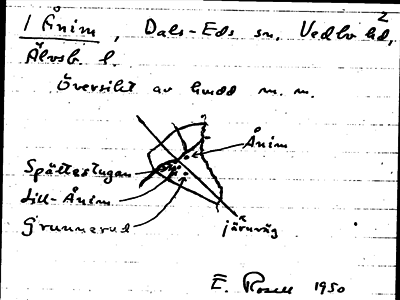 2
1 Ånim, Dals-Eds sn, Vedbo hd,
Älvsb. l.
Översikt av hmdd m. m.
Ånim
Spättestugan
Lill-Ånim
Grunnerud
järnväg
E. Rosell 1950